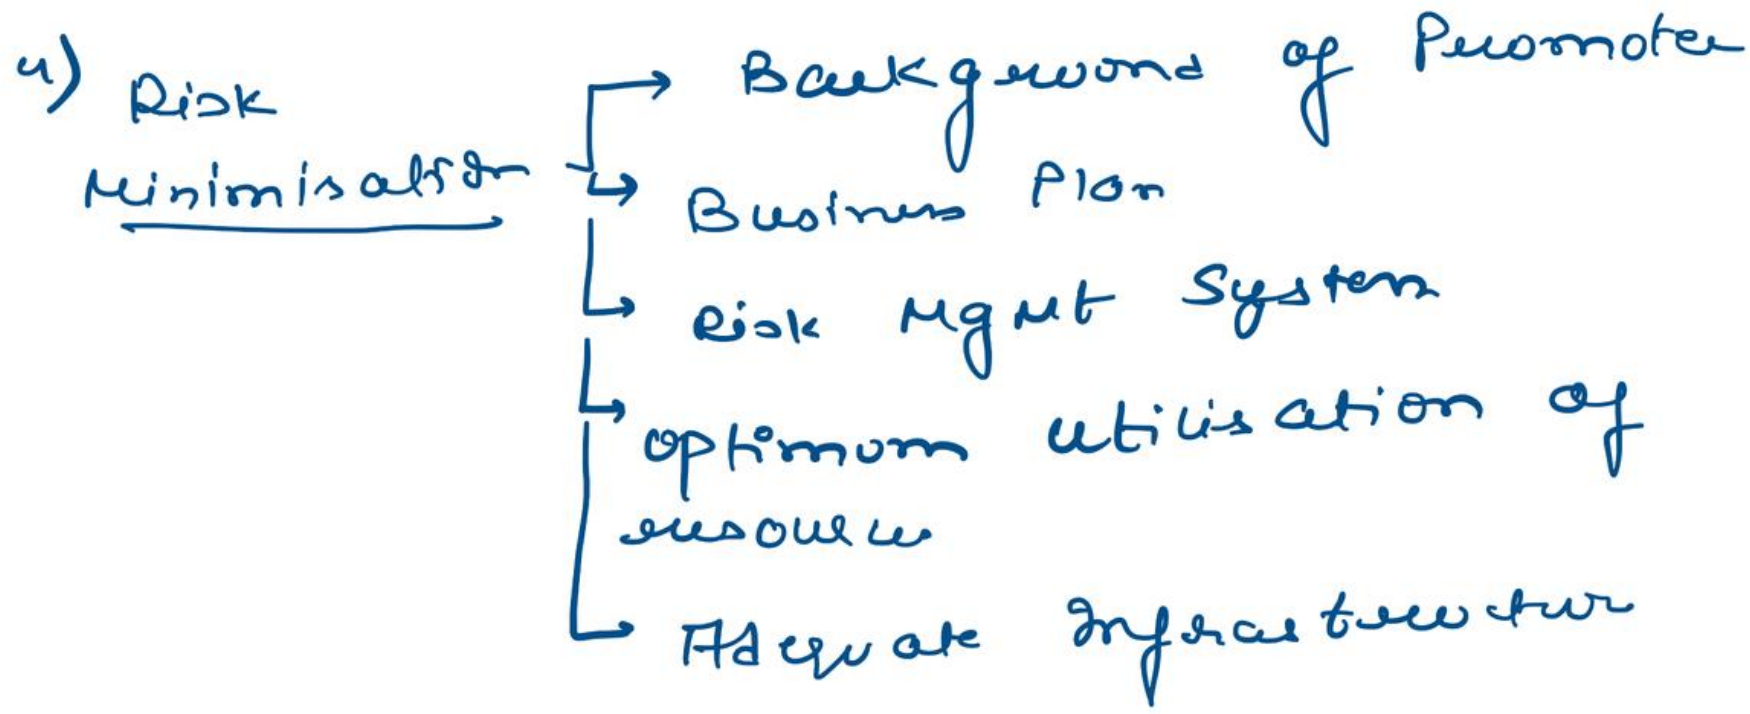 4) Risk
Minimisation
Background of Promoter
Business Plan
Risk Mgmt System
Optimum utilisation of
resources
Adequate Infrastructure